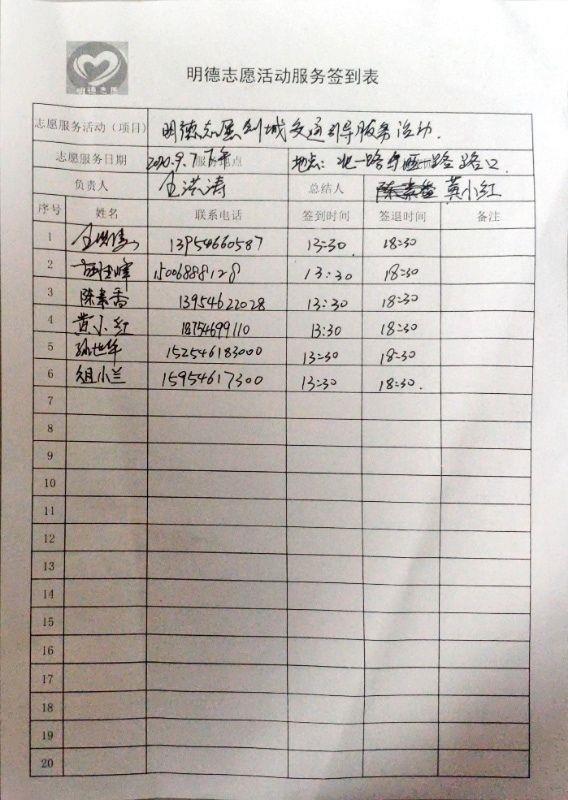 明德志愿
明德志愿活动服务签到表
志愿服务活动（项目） 明德志愿创城交通引导服务活动.
志愿服务日期 2020.9.7下午 服务地点 地点: 北一路 路路口.
负责人 王洪涛 总结人 陈素香 黄小红
序号 姓名 联系电话 签到时间 签退时间 备注
1 王洪涛 13954660587 13:30 18:30
2 15006888128 13:30 18:30
3 陈素香 13954622028 13:30 18:30
4 黄小红 18754699110 13:30 18:30
5 孙世华 152546183000 13:30 18:30
6 俎小兰 15954617300 13:30 18:30.
7
8
9
10
11
12
13
14
15
16
17
18
19
20